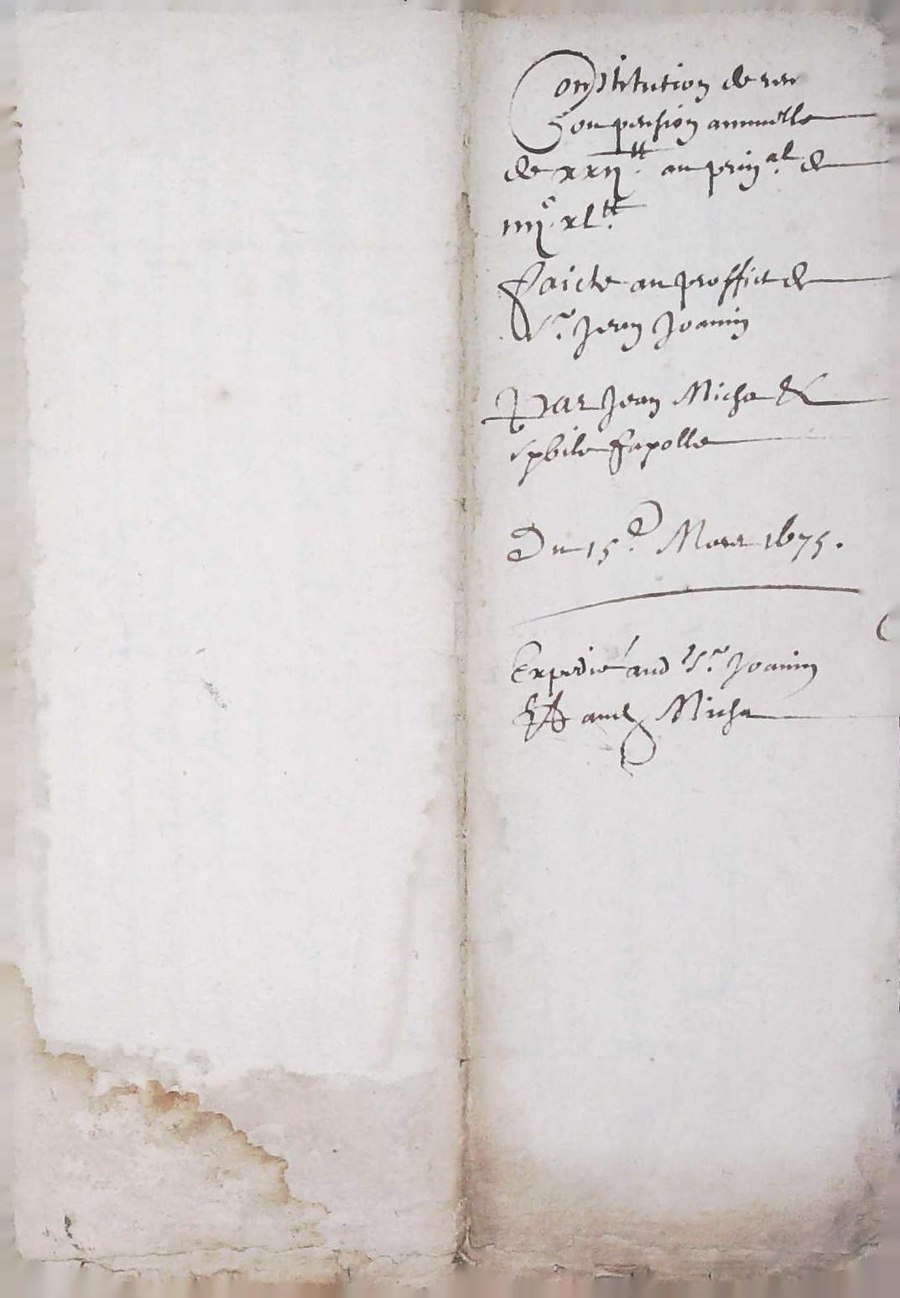 Constitution de
ou pension annuelle
de xxij.tt au prinal de
iiijc.xl.tt
Faicte au proffict de
Sr Jean Joanin
Par Jean Micha &
sybile
Du 15e Mars 1675.
Expedié aud Sr Joanin
Et aud Micha